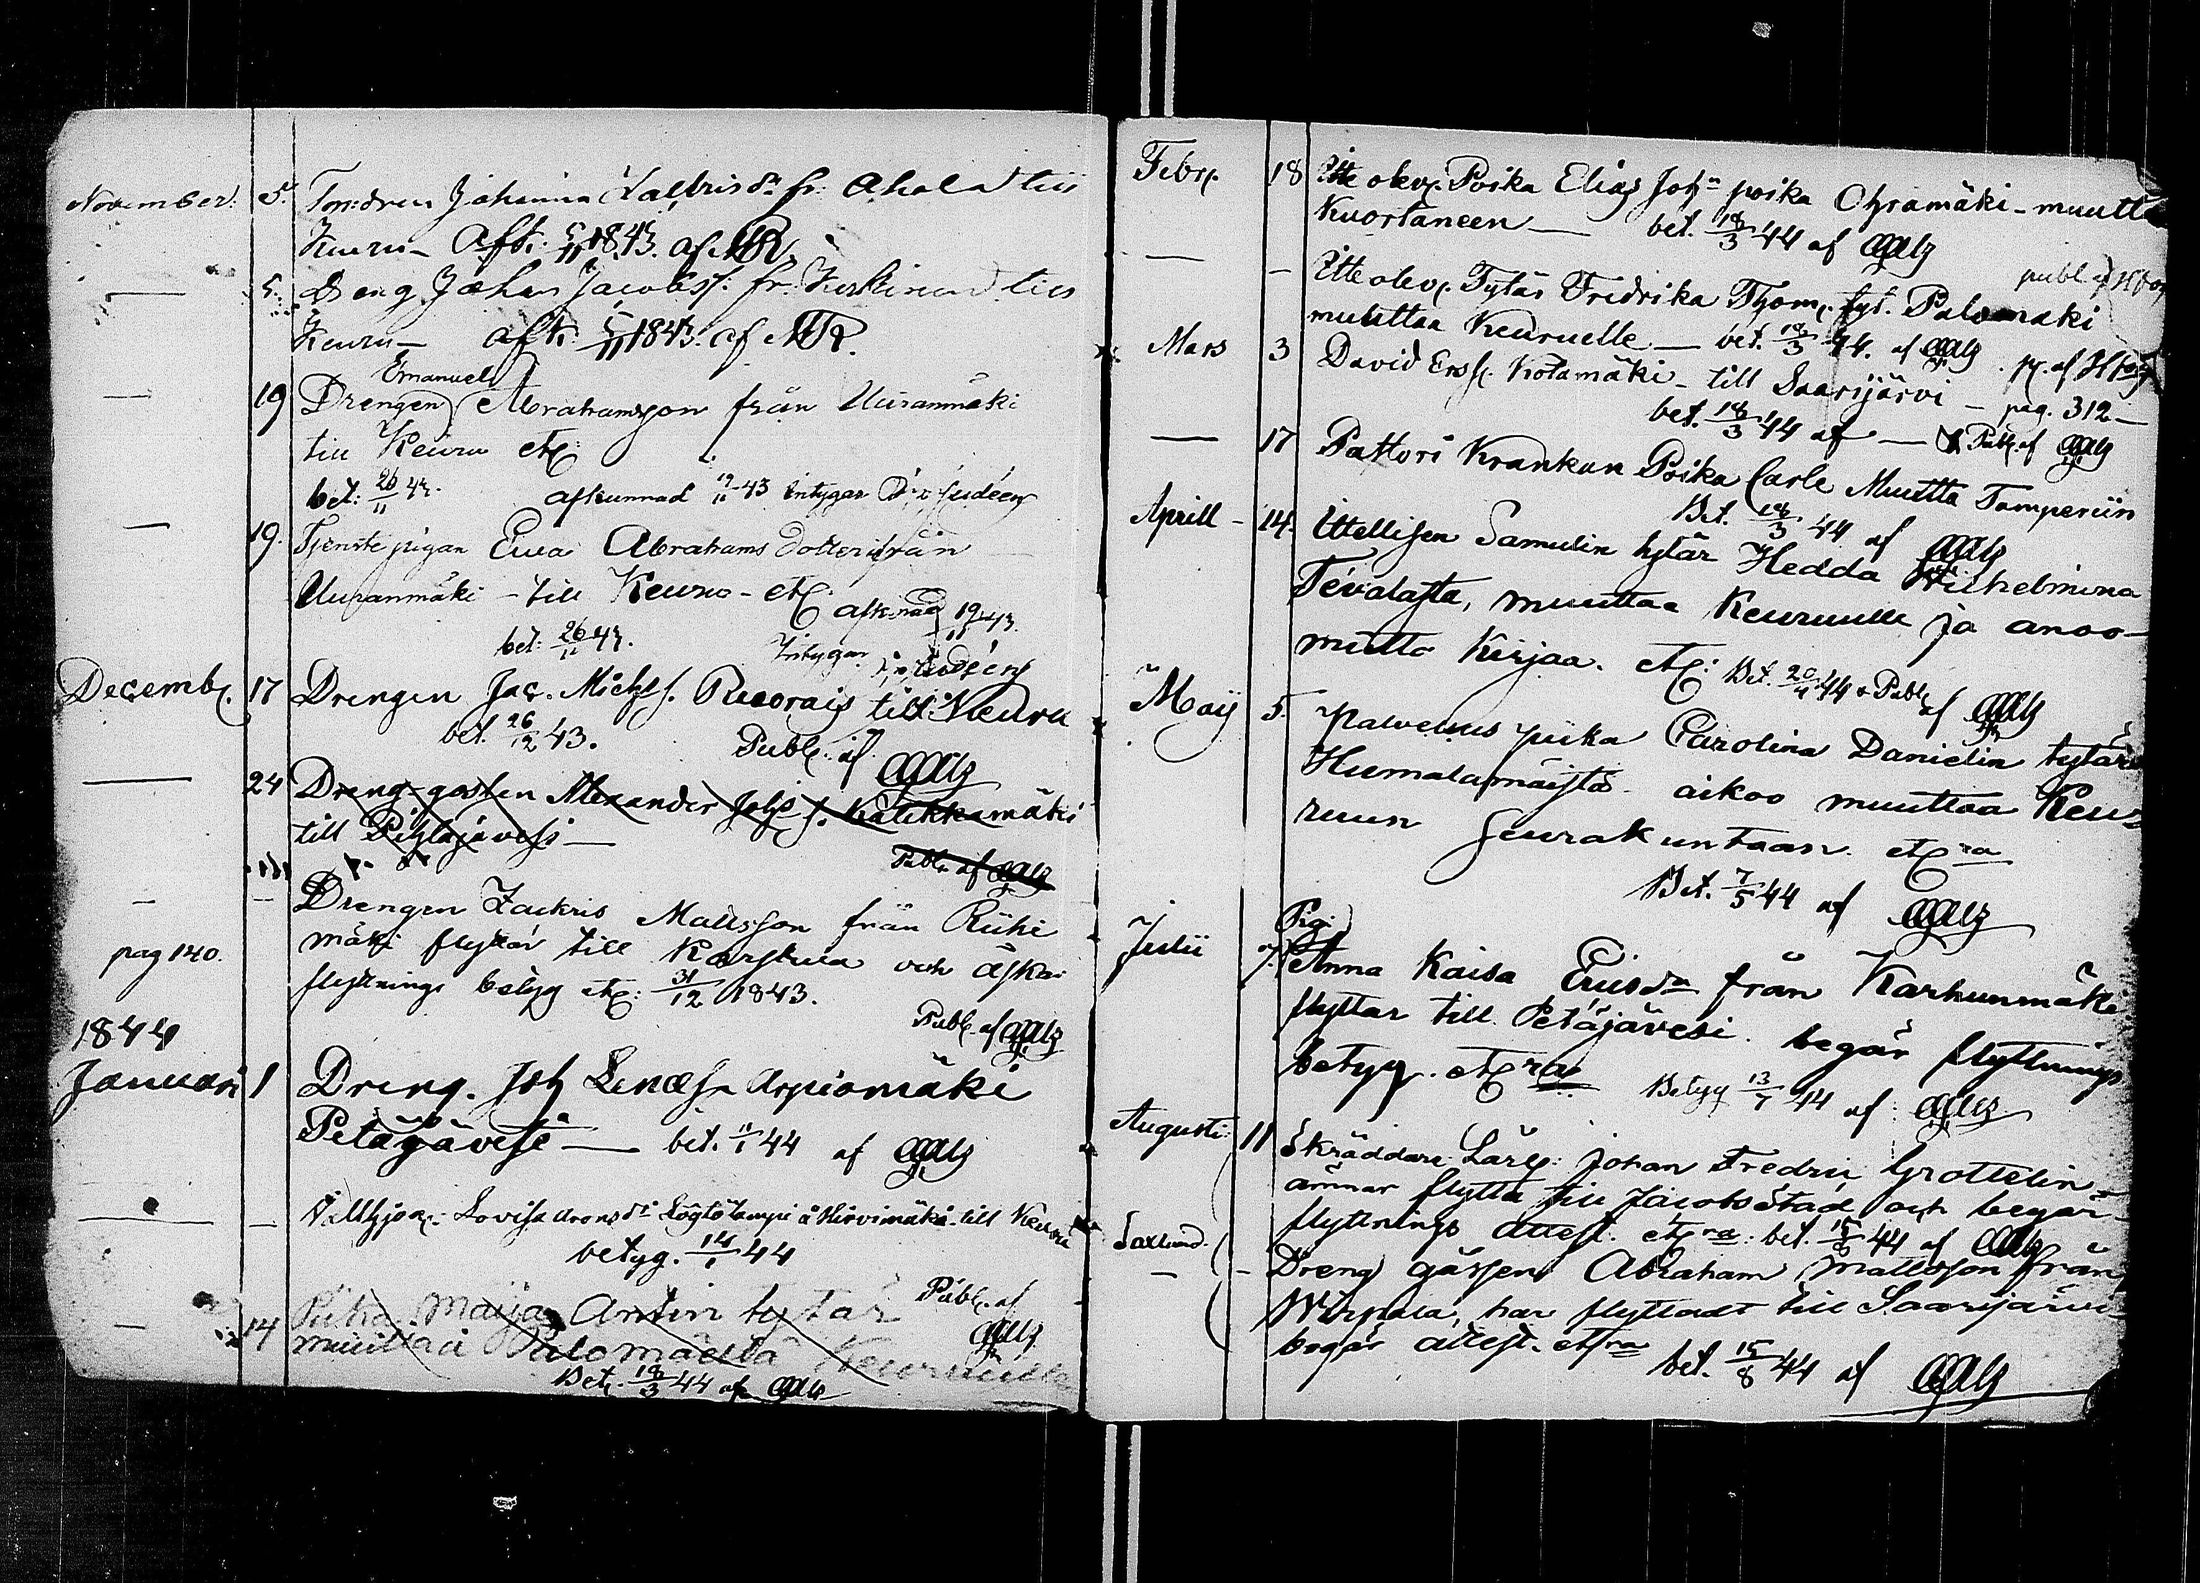 November. 5. Torp:dren Johanna fr. Ahola till
Keuru – Afk. 5/11 1843. af
5. Dreng Johan Jacobss. fr. Keskinen till
Keuru – afk. 5/11 1843. af
Emanuel
19 Drengen Abrahamsson från Uuranmäki
till Keuru etc
bet: 26/11 43. afkunnad 19/11 43 Intygar
19. Tjenste pigan Ewa Abrahams dotter från
Uuranmäki – till Keuru – etc
afk:nad 19/11 43.
bet: 26/11 43. Intygar
Decemb. 17 Drengen Jac. Michelss. till Keuru
bet. 26/12 43. Publ. af
24 Dreng-gossen Alexander Johss. Kalikkamäki
till Pihlajavesi –
Publ. af
Drengen Zackris Mattsson från Riihi
mäki flyttar till Karstula och äskar
pag 140.
flyttnings betyg etc: 31/12 1843.
Publ. af
1844
Januari 1 Dreng. Joh Arpiomäki
Petäjävesi — bet. 11/1 44 af
Lovisa Arons dr å Hirvimäki till Keuru
betyg. 14/1 44
Publ. af
14 Piika Maija Antin tytär
muuttaa Palomäeltä Keuruulle
Bet. 18/3 44 af
Febr. 18 Itte olev. Poika Elias Joh poika Ohramäki – muutta
Kuortaneen — bet. 18/3 44 af
publ af
– Itte olev. Tytär Fredrika Thom. tyt. Palomaki
muuttaa Keuruelle — bet. 18/3 44. af
Mars 3 David Erss. Kotamäki – till Saarijärvi – pag. 312 –
bet. 18/3 44 af — Publ. af
17 Pattori Krankan Poika Carle Muutta Tamperiin
Bet. 18/3 44 af
Aprill – 14. Ittellisen Samulin tytär Hedda Wilhelmina
Tevalasta, muuttaa Keuruulle ja anoo
mutto Kirjaa. etc: Bet. 20/4 44 & Publ. af
Maij 5. Palvelus piika Carolina Danielin tytär
Humalamäistä aikoo muuttaa Keu=
ruun Seurakuntaan. etc ra
Bet. 7/5 44 af
Pig:
Julii 7. Anna Kaisa Ericsdr från Karhunmäki
flyttar till Petäjävesi. begär flyttnings
betyg. etc ra Betyg 13/7 44 af
Augusti: 11 Skräddare Lärl: Johan Fredric Grottelin
ämnar flytta till Jacobstad och begär
flyttnings attest. etc ra. bet. 15/8 44 af
– Dreng gåssen Abraham Mattsson från
har flyttadt till Saarijärvi
begär attest. etc ra
bet. 15/8 44 af